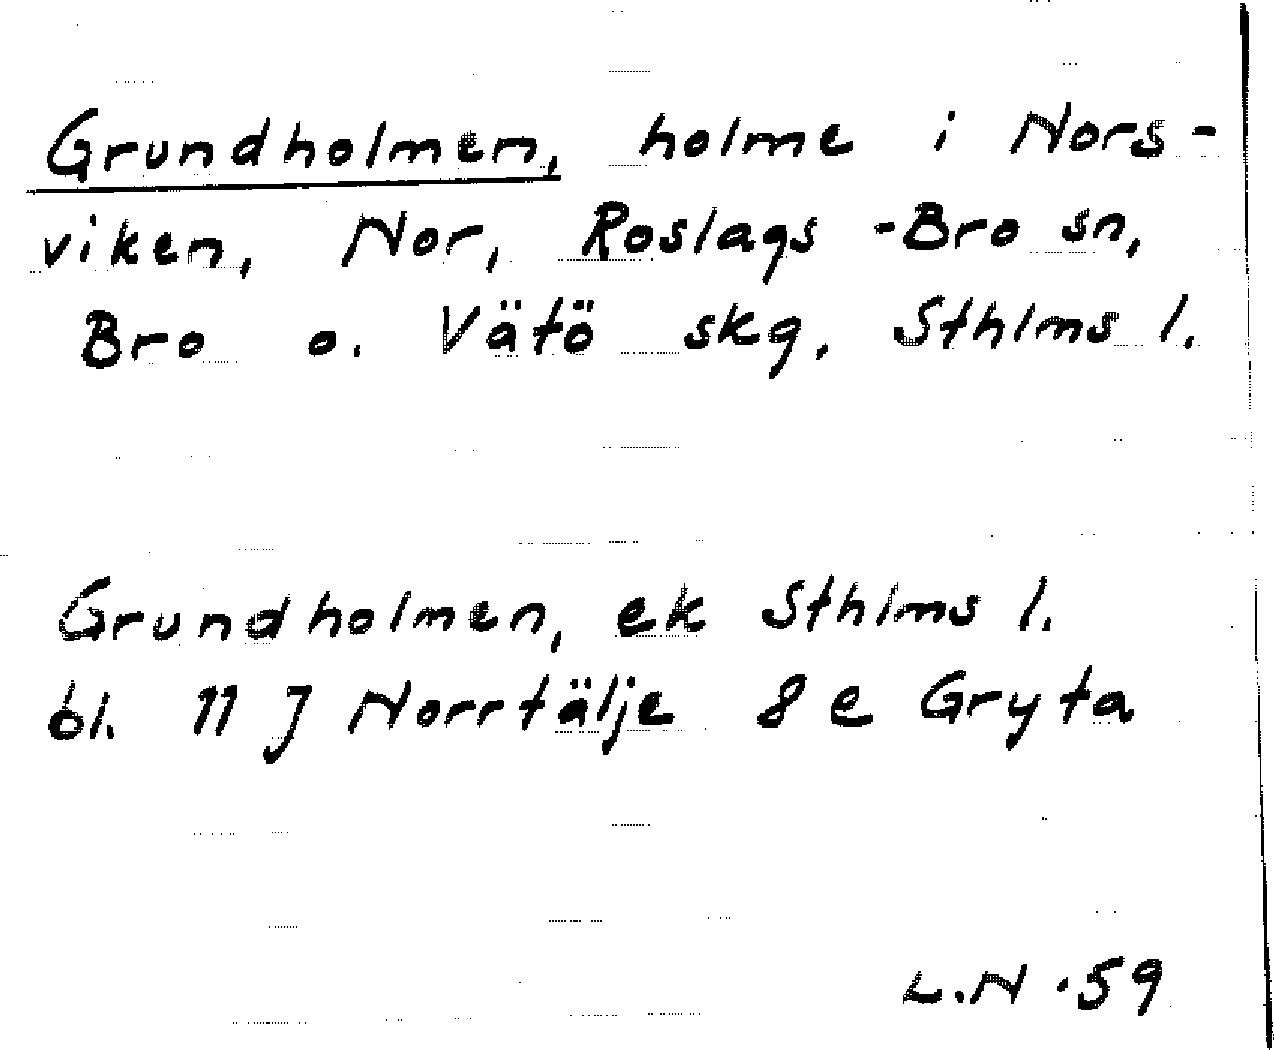 Grundholmen, holme i Nors-
viken, Nor, Roslags-Bro sn,
Bro o. Vätö skg, Sthlms l.
Grundholmen, ek Sthlms l.
bl. 11 J Norrtälje 8 e Gryta
L.N. 59